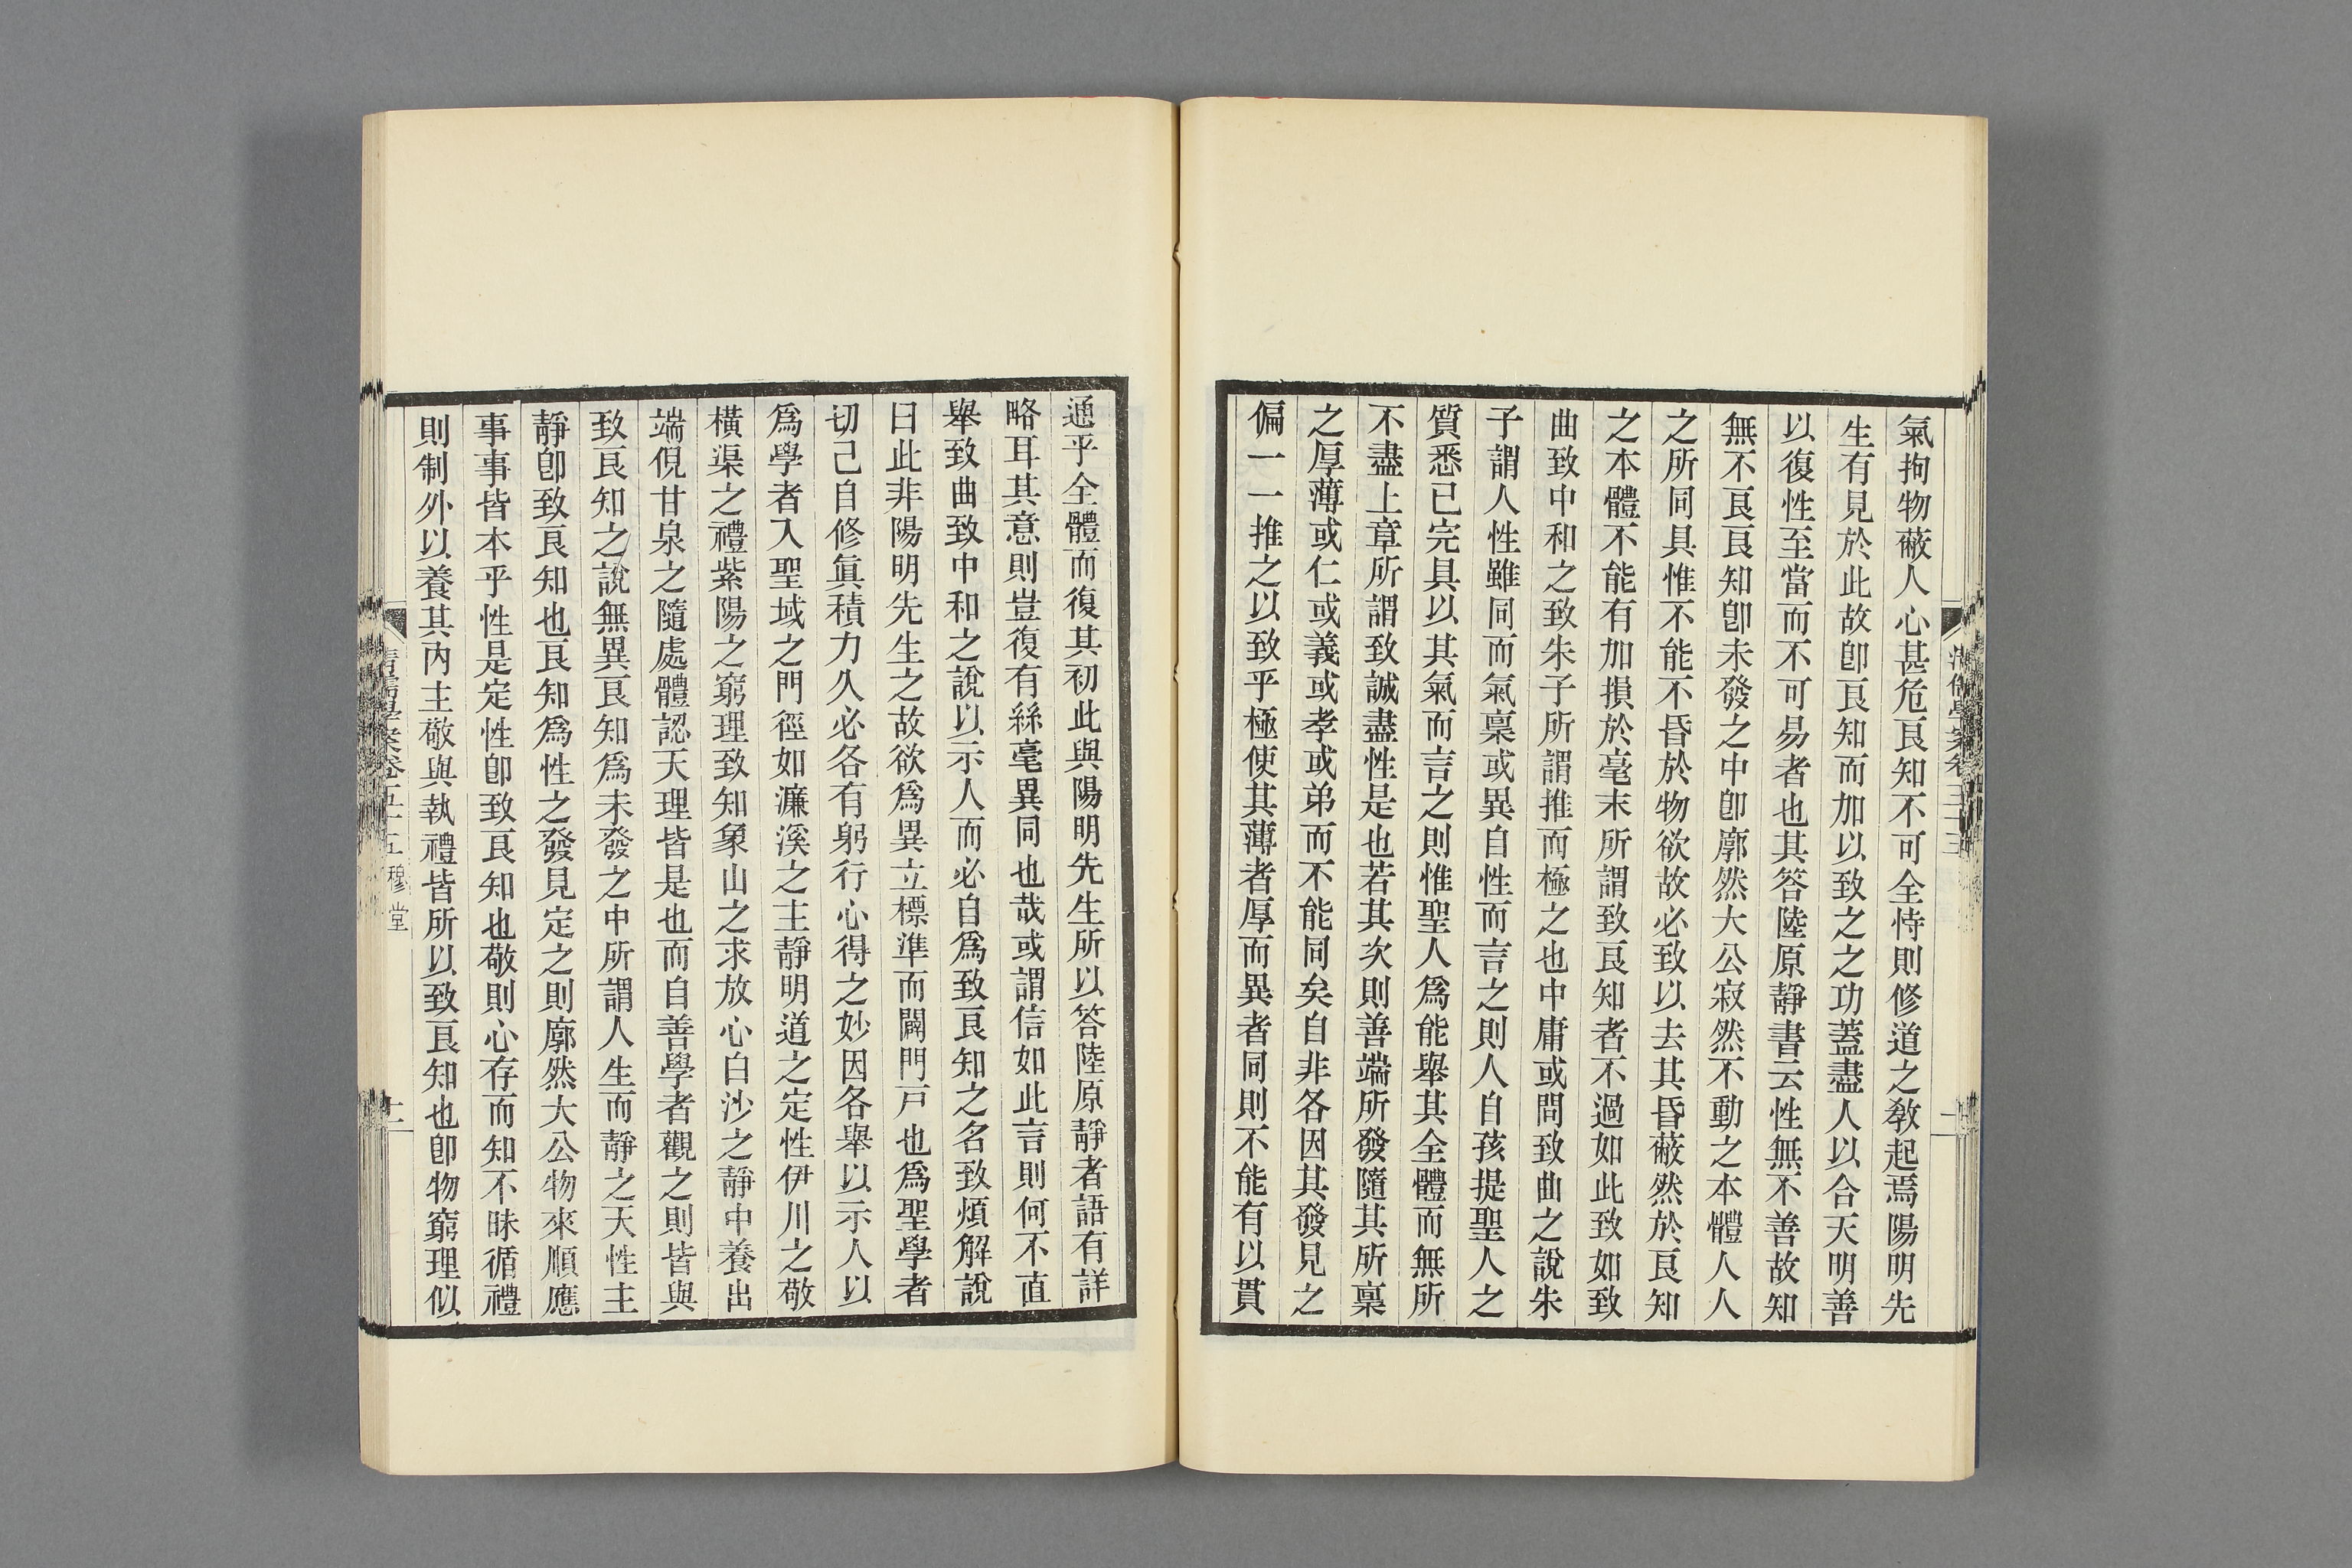 氣拘物蔽人心甚危良知不可全恃則修道之敎起焉陽明先
生有見於此故卽良知而加以致之之功蓋盡人以合天明善
以復性至當而不可易者也其答陸原靜書云性無不善故知
無不良良知卽未發之中卽廓然大公寂然不動之本體人人
之所同具惟不能不昏於物欲故必致以去其昏蔽然於良知
之本體不能有加損於毫末所謂致良知者不過如此致如致
曲致中和之致朱子所謂推而極之也中庸或問致曲之說朱
子謂人性雖同而氣稟或異自性而言之則人自孩提聖人之
質悉已完具以其氣而言之則惟聖人爲能舉其全體而無所
不盡上章所謂致誠盡性是也若其次則善端所發隨其所稟
之厚薄或仁或義或孝或弟而不能同矣自非各因其發見之
偏一一推之以致乎極使其薄者厚而異者同則不能有以貫
通乎全體而復其初此與陽明先生所以答陸原靜者語有詳
略耳其意則豈復有絲毫異同也哉或謂信如此言則何不直
舉致曲致中和之說以示人而必自爲致良知之名致煩解說
曰此非陽明先生之故欲爲異立標準而闢門戸也爲聖學者
切己自修眞積力久必各有躬行心得之妙因各舉以示人以
爲學者入聖域之門徑如濂溪之主靜明道之定性伊川之敬
橫渠之禮紫陽之窮理致知象山之求放心白沙之靜中養出
端倪甘泉之隨處體認天理皆是也而自善學者觀之則皆與
致良知之說無異良知爲未發之中所謂人生而靜之天性主
靜卽致良知也良知爲性之發見定之則廓然大公物來順應
事事皆本乎性是定性卽致良知也敬則心存而知不昧循禮
則制外以養其內主敬與執禮皆所以致良知也卽物窮理似
穆堂